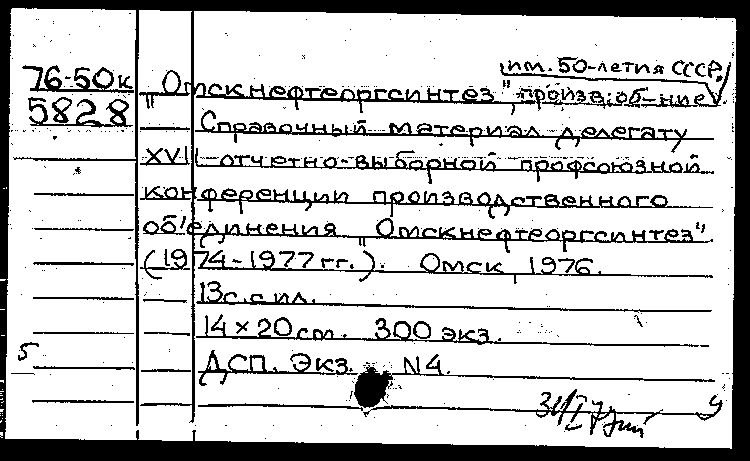 им. 50-летия СССР.
76-50к "Омскнефтеоргсинтез", произв. об-ние
5828
Справочный материал делегату
XVII отчетно-выборной профсоюзной
конференции производственного
об'единения "Омскнефтеоргсинтез"
(1974-1977 гг.). Омск, 1976.
13с. с ил.
14×20 cm. 300 экз.
5 ДСП. Экз. N4.
У